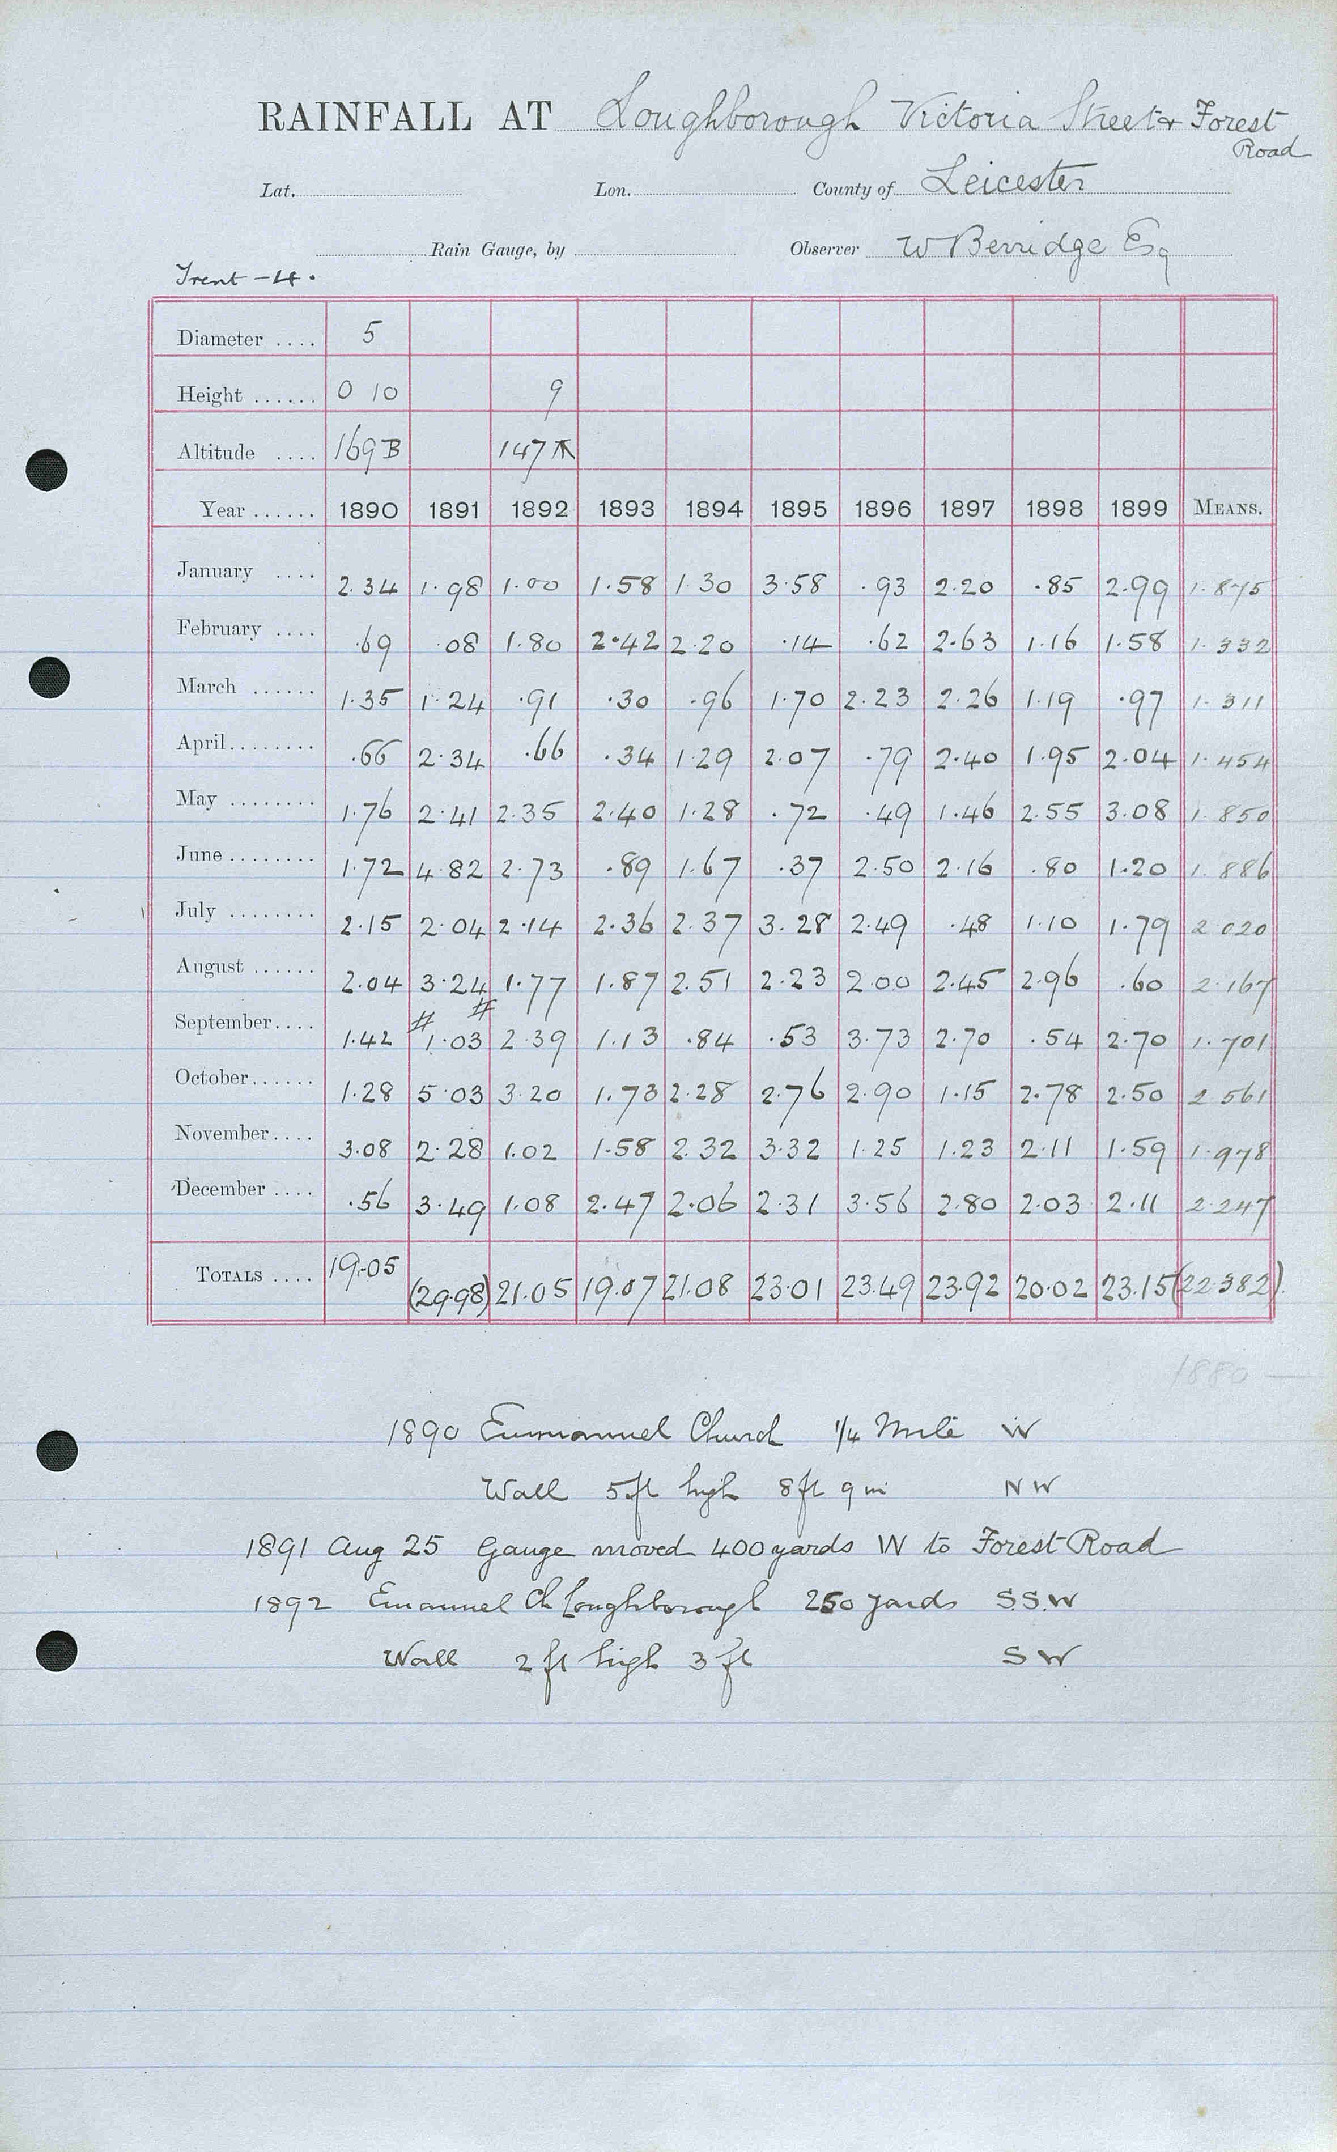 RAINFALL AT Loughborough Victoria Street & Forest
Road
Lat. Lon. County of Leicester
Rain Gauge, by Observer W Berridge Esq
Trent - 4.
Diameter .... 5
Height ...... 0 10 9
Altitude .... 169 B 147
Year ...... 1890 1891 1892 1893 1894 1895 1896 1897 1898 1899 MEANS.
January .... 2.34 1.98 1.00 1.58 1.30 3.58 .93 2.20 .85 2.99 1.875
February .... .69 .08 1.80 2.42 2.20 .14 .62 2.63 1.16 1.58 1.332
March ...... 1.35 1.24 .91 .30 .96 1.70 2.23 2.26 1.19 .97 1.311
April........ .66 2.34 .66 .34 1.29 2.07 .79 2.40 1.95 2.04 1.454
May ........ 1.76 2.41 2.35 2.40 1.28 .72 .49 1.46 2.55 3.08 1.850
June........ 1.72 4.82 2.73 .89 1.67 .37 2.50 2.16 .80 1.20 1.886
July ........ 2.15 2.04 2.14 2.36 2.37 3.28 2.49 .48 1.10 1.79 2.020
August ...... 2.04 3.24 1.77 1.87 2.51 2.23 2.00 2.45 2.96 .60 2.167
September.... 1.42 # 1.03 # 2.39 1.13 .84 .53 3.73 2.70 .54 2.70 1.701
October...... 1.28 5.03 3.20 1.73 2.28 2.76 2.90 1.15 2.78 2.50 2.561
November.... 3.08 2.28 1.02 1.58 2.32 3.32 1.25 1.23 2.11 1.59 1.978
December .... .56 3.49 1.08 2.47 2.06 2.31 3.56 2.80 2.03 2.11 2.247
TOTALS .... 19.05 (29.98) 21.05 19.07 21.08 23.01 23.49 23.92 20.02 23.15 (22.382)
1880 —
1890 Emmanuel Church 1/4 Mile W
Wall 5ft high 8ft 9in NW
1891 Aug 25 Gauge moved 400 yards W to Forest Road
1892 Emanuel Ch Loughborough 250 yards S.S.W
Wall 2 ft high 3 ft SW